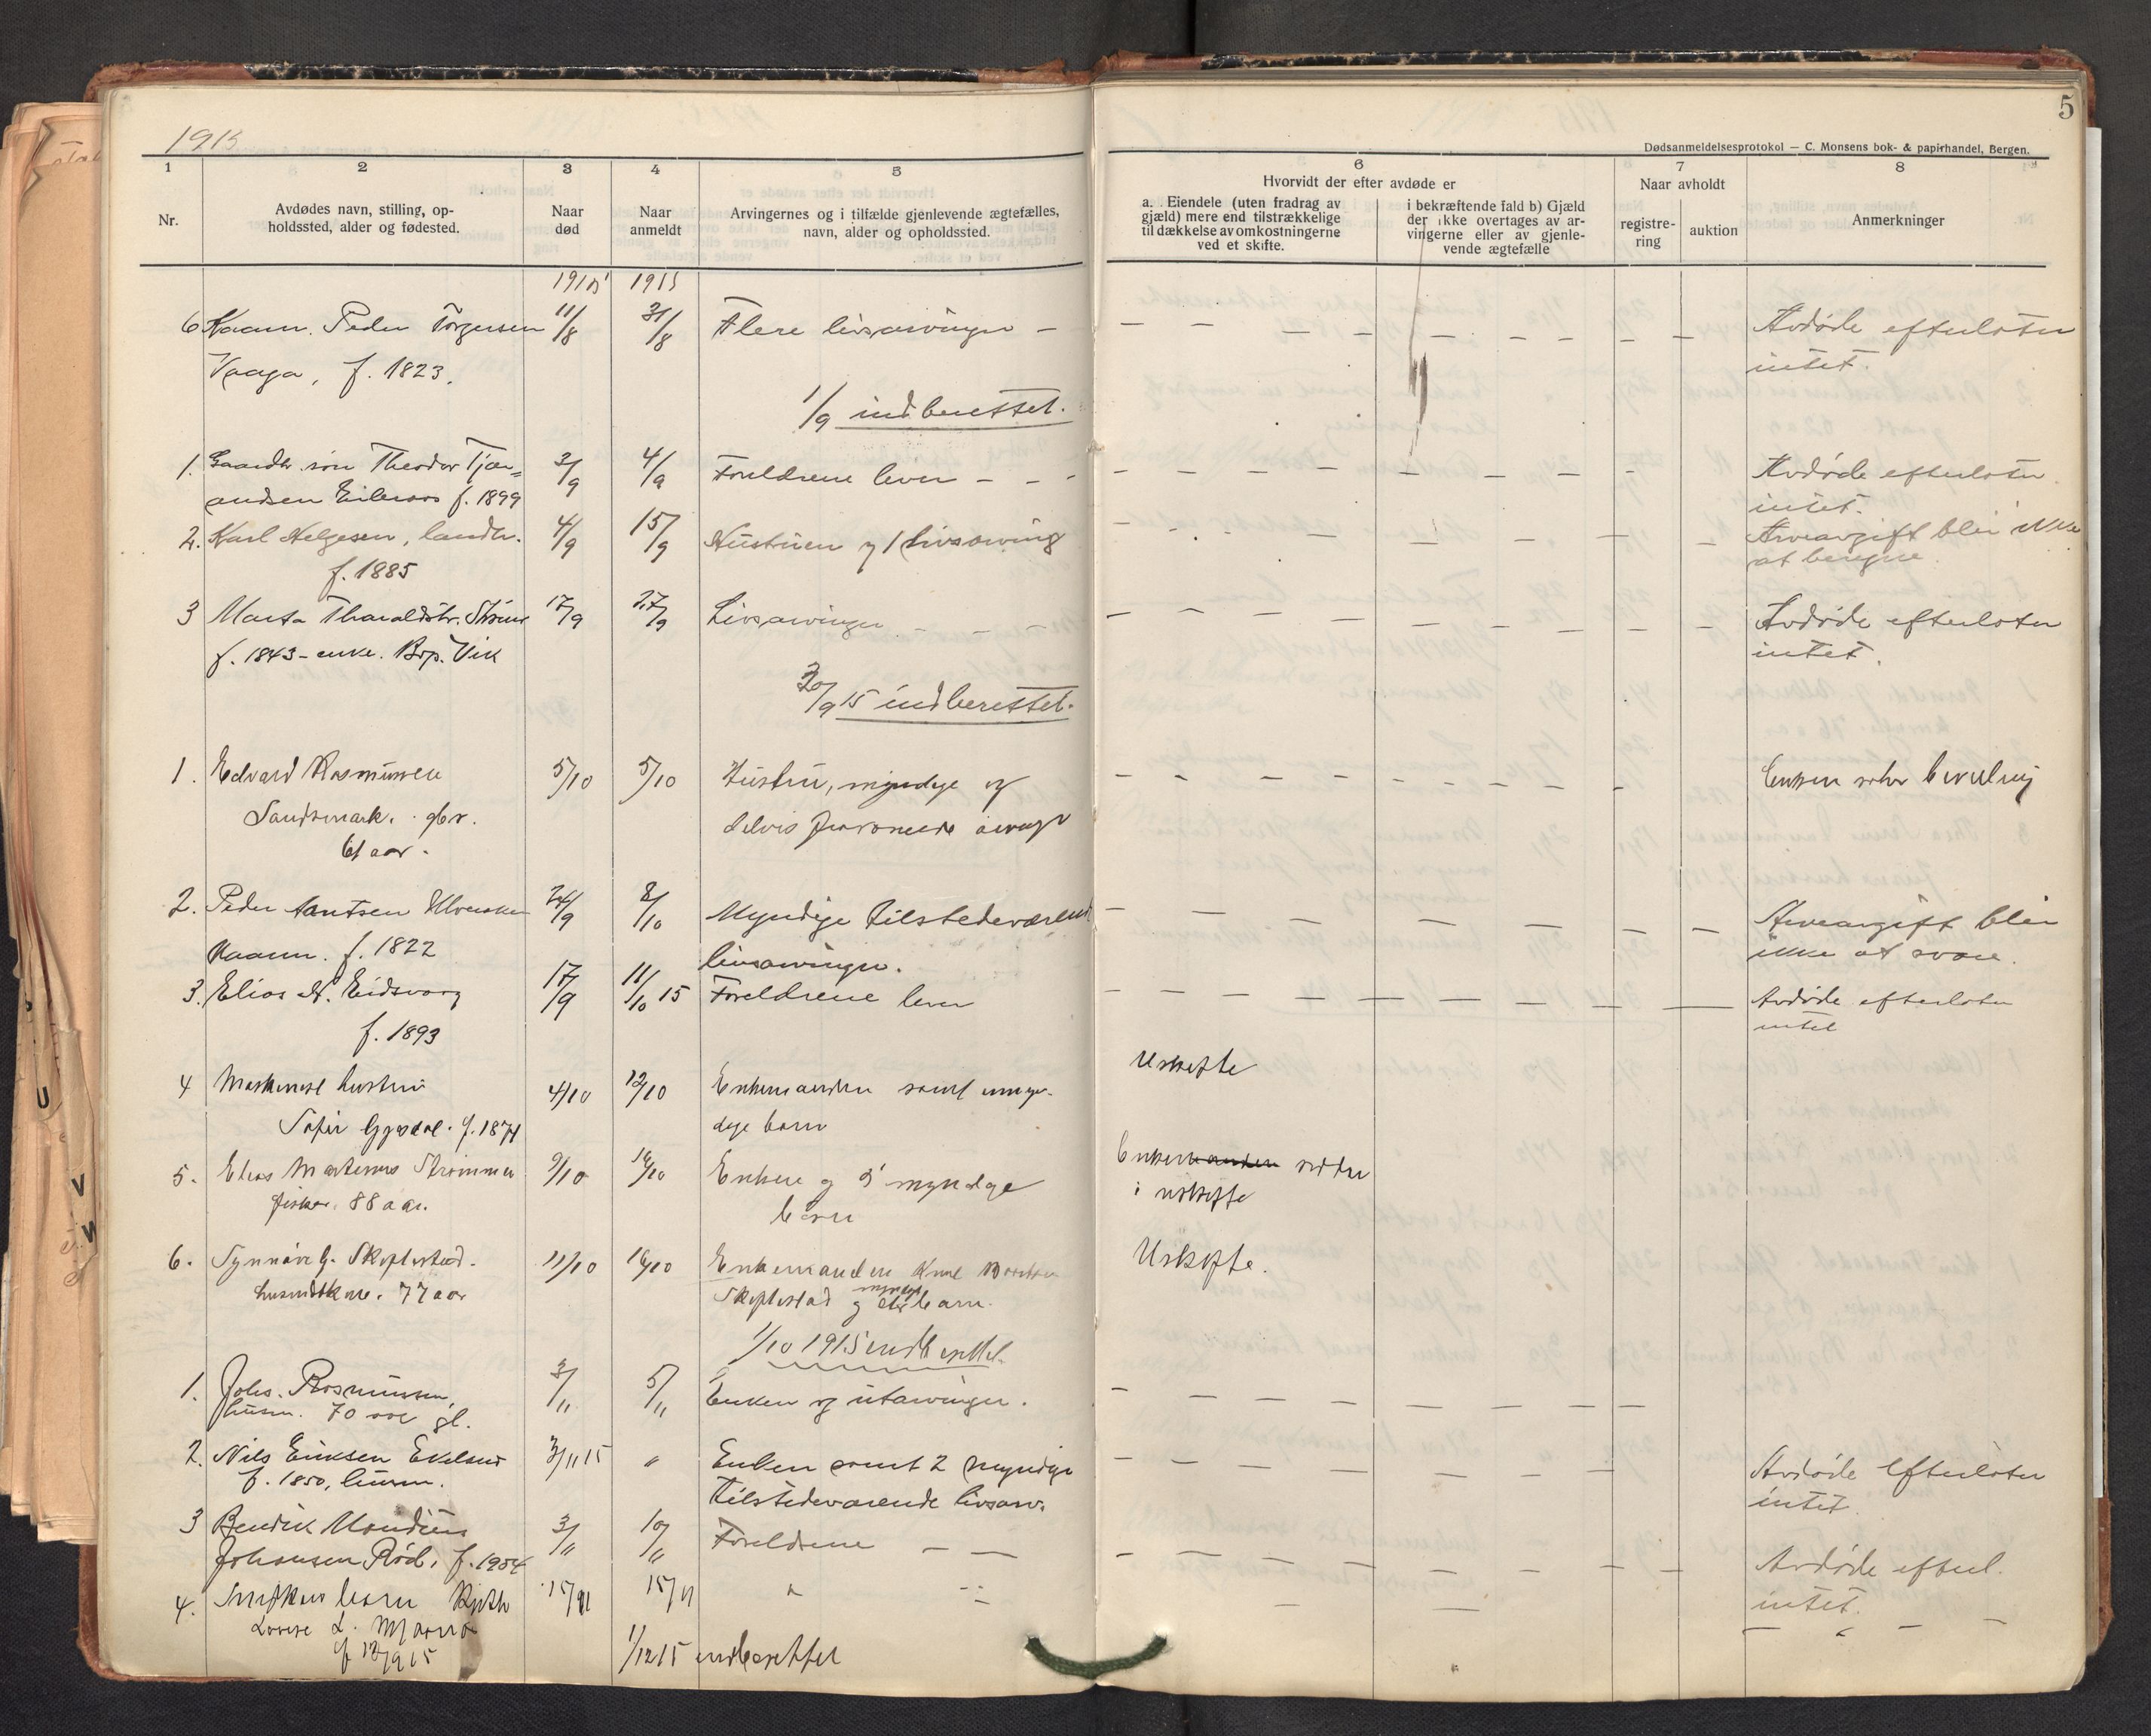 1915
5
Dødsanmeldelsesprotokol — C. Monsens bok- & papirhandel, Bergen.
1 2 3 4 5 6 7 8
Nr.
Avdødes navn, stilling, op-
holdssted, alder og fødested.
Naar
død
Naar
anmeldt
Arvingernes og i tilfælde gjenlevende ægtefælles,
navn, alder og opholdssted.
Hvorvidt der efter avdøde er
a. Eiendele (uten fradrag av
gjæld) mere end tilstrækkelige
til dækkelse av omkostningerne
ved et skifte.
i bekræftende fald b) Gjæld
der ikke overtages av ar-
vingerne eller av gjenle-
vende ægtefælle
Naar avholdt
registre-
ring
auktion
Anmerkninger
1915 1915
6 Kaarm. Peder Torgersen 11/8 31/8 Flere livsarvinger — Avdøde efterlater
Vaaga, f. 1823. intet.
1/9 indberettet.
1. Gaardbr. søn Theodor Tjer= 3/9 4/9 Forældrene lever — — Avdøde efterlater
andsen f. 1899 intet.
2. Karl Helgesen, landh. 4/9 15/9 Hustruen og 1 livsarving Arveavgift blir ikke
f. 1885 at beregne.
3 Marta Tharaldsdtr. 17/9 27/9 Livsarvinger — — — Avdøde efterlater
f. 1843 - enke. Bop. Vik intet.
30/9 15 indberettet.
1. Edvard Rasmussen 5/10 5/10 Hustru, myndige og Enken søker bevilling
Sandsmark. gbr. delvis fraværende arvinger
61 aar.
2. Peder 24/9 8/10 Myndige tilstedeværende Arveavgift blir
Kaarm. f. 1822 livsarvinger. ikke at svare.
3. Elias A. Eidsvaag 17/9 11/10 15 Forældrene lever Avdøde efterlater
f. 1893 intet
4 hustru 4/10 12/10 Enkemanden samt umyn- Uskifte
Sofie f. 1874 dige barn
5. Elias Martinus Strømmen 9/10 14/10 Enken og 5 myndige Enkemanden sidder
fisker. 88 aar. barn i uskifte
6. Synnøve G. Skoftestad. 11/10 16/10 Enkemanden Knut Uskifte.
husmdskone. 77 aar Skoftestad og myndige barn.
1/10 1915 indberettet.
1. Johs. Rasmussen, 3/11 5/11 Enken og utarvinger.
husm. 70 aar gl.
2. Nils Eriksen 3/11 15 " Enken samt 2 myndige Avdøde efterlater
f. 1850, husm. tilstedeværende livsarv. intet.
3 Bendik 3/11 10/11 Forældrene — — Avdøde efterl.
Johansen Rød, f. 1904 intet.
4. barn Ruth 15/11 15/11 "
Lovise L.
f 12/9 15
1/12 15 indberettet